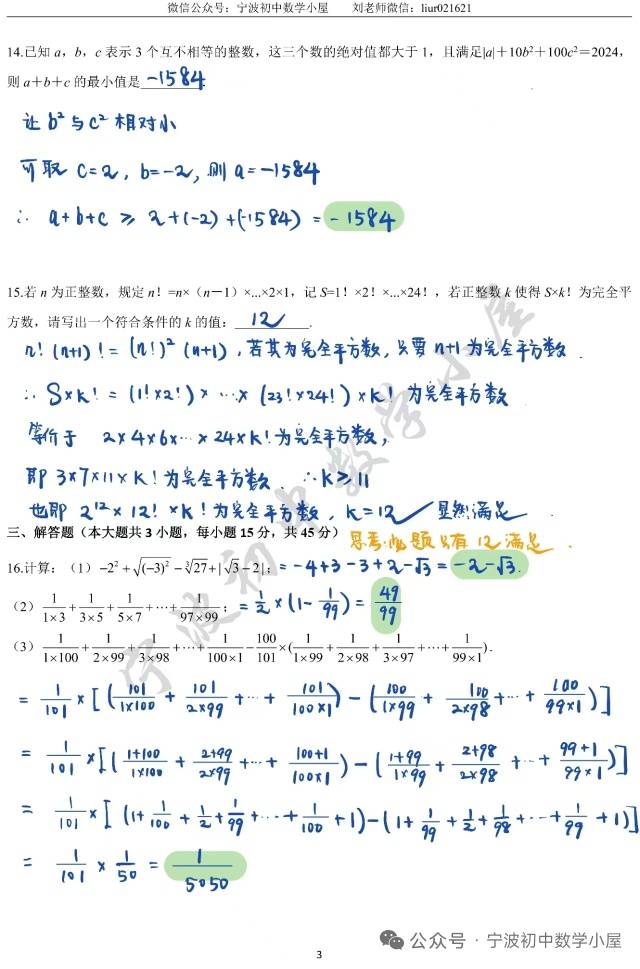 微信公众号：宁波初中数学小屋 刘老师微信：liur021621
14.已知 a，b，c 表示 3 个互不相等的整数，这三个数的绝对值都大于 1，且满足|a|＋10b²＋100c²＝2024，
则 a＋b＋c 的最小值是 -1584
让 b² 与 c² 相对小
可取 c=2, b=-2, 则 a=-1584
∴ a+b+c ≥ 2+(-2)+(-1584) = -1584
15.若 n 为正整数，规定 n！=n×（n－1）×...×2×1，记 S=1！×2！×...×24！，若正整数 k 使得 S×k！为完全平
方数，请写出一个符合条件的 k 的值： 12 .
n! (n+1)! = (n!)² (n+1) , 若其为完全平方数, 只要 n+1 为完全平方数 .
∴ S×k! = (1!×2!) × ⋯× (23!×24!) × k! 为完全平方数
等价于 2×4×6×⋯×24×k! 为完全平方数,
即 3×7×11×k! 为完全平方数 . ∴k≥11
也即 2¹²× 12! ×k! 为完全平方数, k=12 ✓ 显然满足
三、解答题（本大题共 3 小题，每小题 15 分，共 45 分） 思考:此题只有 12 满足 .
16.计算：（1）−2²+√(−3)²−∛27+|√3−2|； = -4+3-3+2-√3 = -2-√3 .
（2）1/(1×3)+1/(3×5)+1/(5×7)+⋯+1/(97×99)； = 1/2 ×(1-1/99) = 49/99
（3）1/(1×100)+1/(2×99)+1/(3×98)+⋯+1/(100×1)−100/101×(1/(1×99)+1/(2×98)+1/(3×97)+⋯+1/(99×1)).
= 1/101 ×[(101/(1×100) + 101/(2×99) +⋯+ 101/(100×1))-(100/(1×99) + 100/(2×98) +⋯+ 100/(99×1))]
= 1/101 ×[((1+100)/(1×100) + (2+99)/(2×99) +⋯+ (100+1)/(100×1))-((1+99)/(1×99) + (2+98)/(2×98) +⋯+ (99+1)/(99×1))]
= 1/101 ×[(1+1/100+1/2+1/99+⋯+1/100+1)-(1+1/99+1/2+1/98+⋯+1/99+1)]
= 1/101 × 1/50 = 1/5050
宁波初中数学小屋
公众号 · 宁波初中数学小屋
3